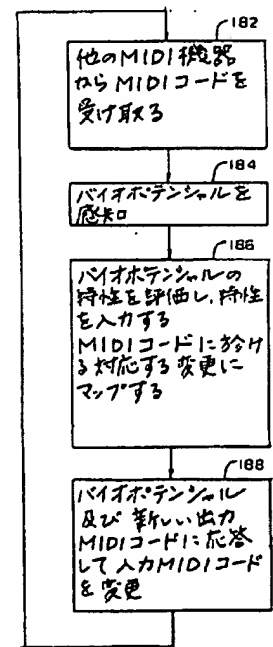 182
他のMIDI機器
からMIDIコードを
受け取る
184
バイオポテンシャルを
感知
186
バイオポテンシャルの
特性を評価し、特性
を入力する
MIDIコードに於け
る対応する変更に
マップする
188
バイオポテンシャル
及び新しい出力
MIDIコードに応答
して入力MIDIコード
を変更